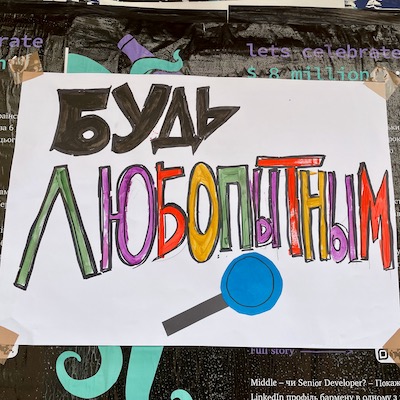 lets celebrate
$ 8 million
БУДЬ
ЛЮБОПЫТНЫМ
Full story
Middle – чи Senior Developer? – Покаж
LinkedIn профіль бармену в одному з